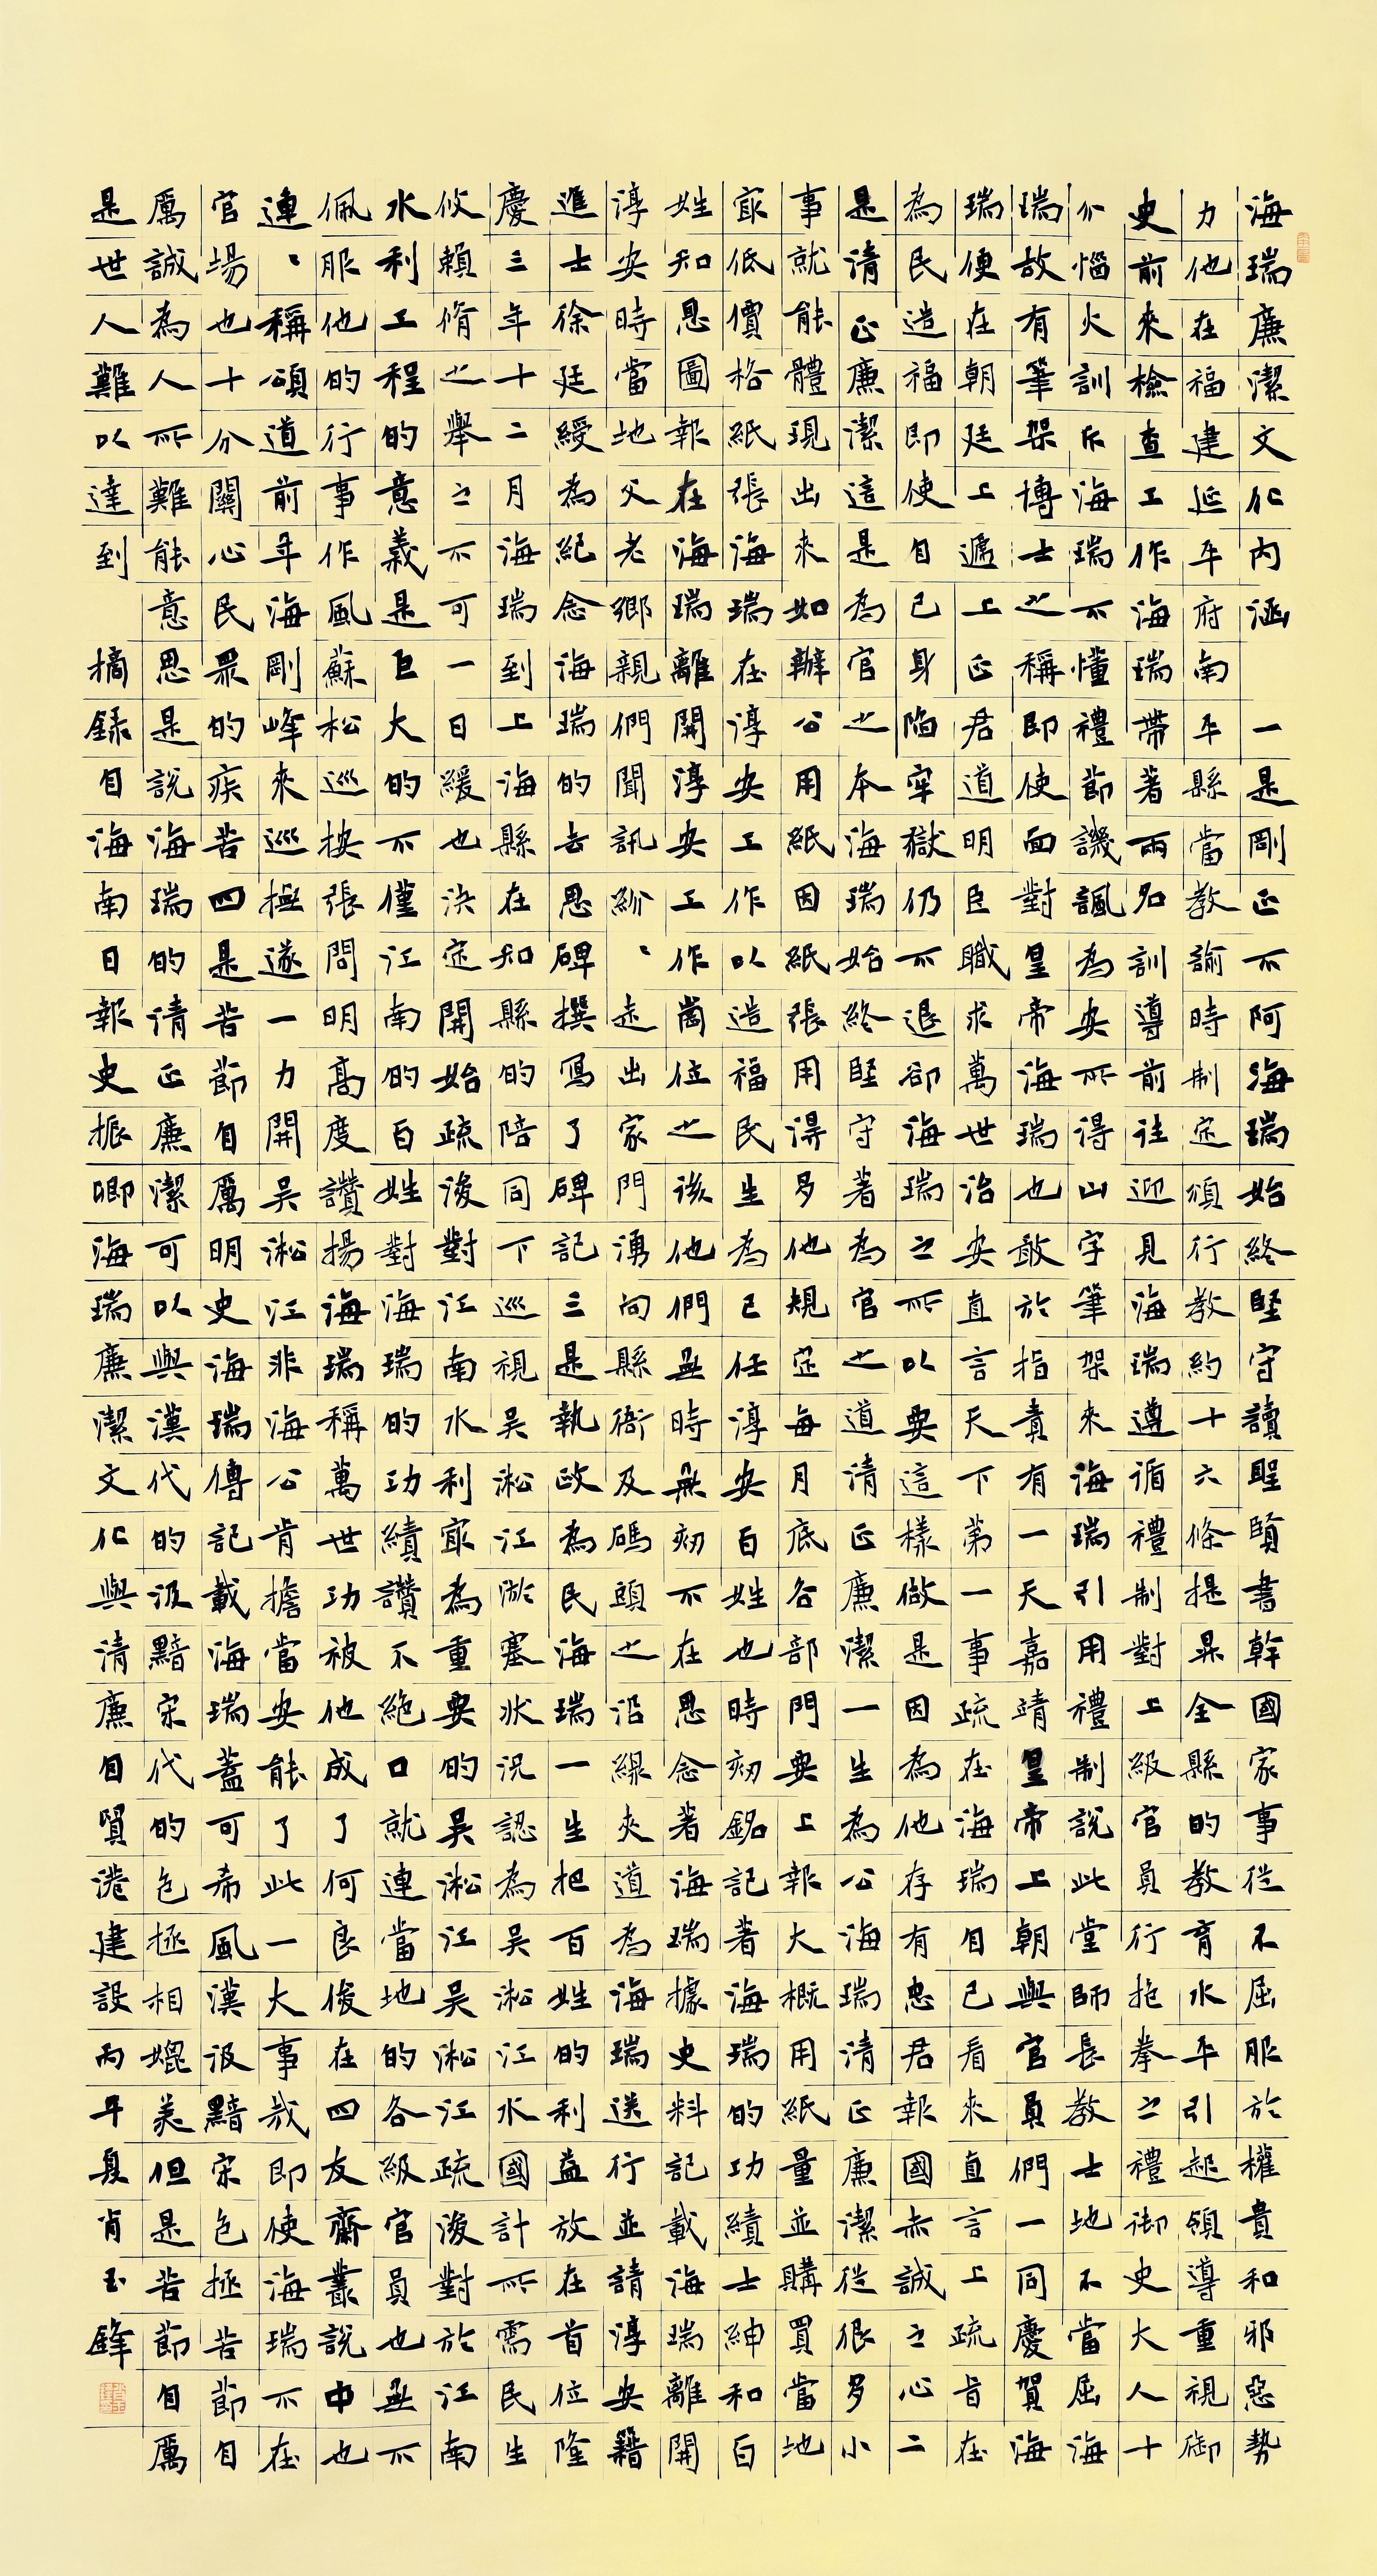 海瑞廉潔文化内涵 一是剛正不阿海瑞始終堅守讀聖賢書幹國家事從不屈服於權貴和邪惡勢
力他在福建延平府南平縣當教諭時制定頒行教約十六條提昇全縣的教育水平引起領導重視御
史前來檢查工作海瑞帶著兩名訓導前往迎見海瑞遵循禮制對上級官員行拖拳之禮御史大人十
分惱火訓斥海瑞不懂禮節譏諷為安所得山字筆架來海瑞引用禮制說此堂師長教士地不當屈海
瑞故有筆架博士之稱即使面對皇帝海瑞也敢於指責有一天嘉靖皇帝上朝與官員們一同慶賀海
瑞便在朝廷上遞上正君道明臣職求萬世治安直言天下第一事疏在海瑞自己看來直言上疏旨在
為民造福即使自己身陷牢獄仍不退卻海瑞之所以要這樣做是因為他存有忠君報國赤誠之心二
是清正廉潔這是為官之本海瑞始終堅守著為官之道清正廉潔一生為公海瑞清正廉潔從很多小
事就能體現出來如辦公用紙因紙張用得多他規定每月底各部門要上報大概用紙量並購買當地
最低價格紙張海瑞在淳安工作以造福民生為己任淳安百姓也時刻銘記著海瑞的功績士紳和百
姓知恩圖報在海瑞離開淳安工作崗位之後他們無時無刻不在思念著海瑞據史料記載海瑞離開
淳安時當地父老鄉親們聞訊紛、走出家門湧向縣衙及碼頭之沿線夾道為海瑞送行並請淳安籍
進士徐廷綬為紀念海瑞的去思碑撰寫了碑記三是執政為民海瑞一生把百姓的利益放在首位隆
慶三年十二月海瑞到上海縣在知縣的陪同下巡視吳淞江淤塞狀況認為吳淞江水國計所需民生
攸賴脩之舉之不可一日緩也決定開始疏浚對江南水利最為重要的吳淞江吳淞江疏浚對於江南
水利工程的意義是巨大的不僅江南的百姓對海瑞的功績讚不絕口就連當地的各級官員也無不
佩服他的行事作風蘇松巡按張問明高度讚揚海瑞稱萬世功被他成了何良俊在四友齋叢說中也
連、稱頌道前年海剛峰來巡撫遂一力開吳淞江非海公肯擔當安能了此一大事哉即使海瑞不在
官場也十分關心民眾的疾苦四是苦節自厲明史海瑞傳記載海瑞蓋可希風漢汲黯宋包拯苦節自
厲誠為人所難能意思是說海瑞的清正廉潔可以與漢代的汲黯宋代的包拯相媲美但是苦節自厲
是世人難以達到 摘錄自海南日報史振卿海瑞廉潔文化與清廉自貿港建設丙午夏肖玉鋒